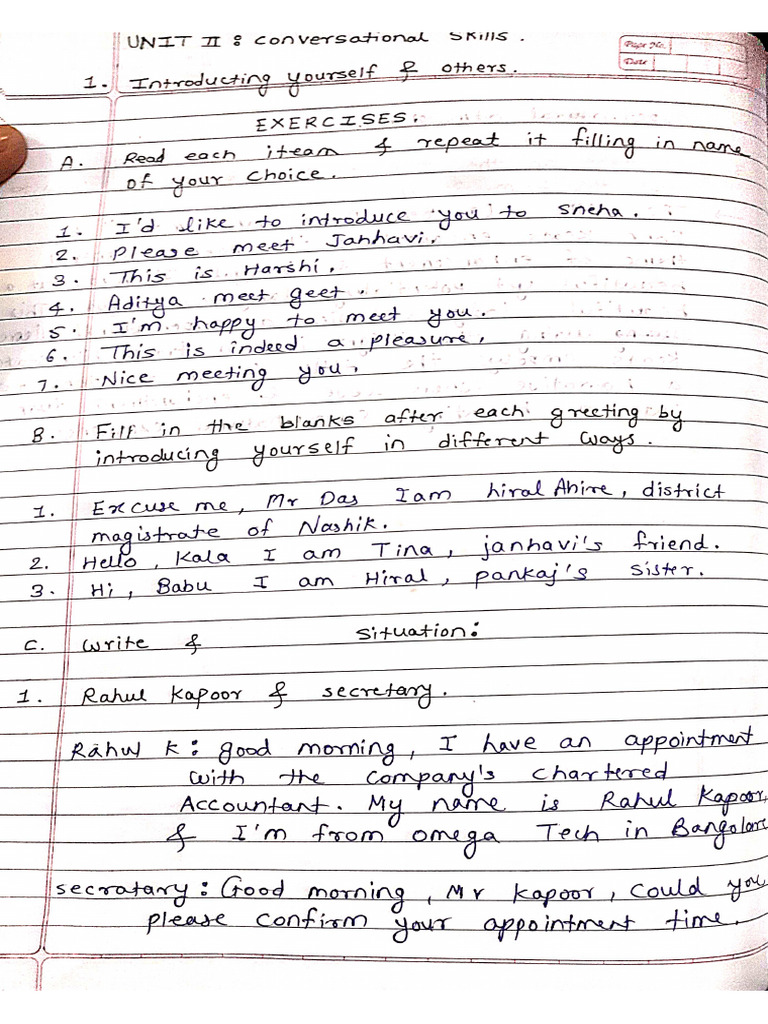 UNIT II : Conversational Skills.
Page No.
Date
1. Introducting yourself & others.
EXERCISES.
A. Read each iteam & repeat it filling in name
of your choice.
1. I'd like to introduce you to Sneha.
2. Please meet Janhavi.
3. This is Harshi.
4. Aditya meet geet.
5. I'm happy to meet you.
6. This is indeed a pleasure.
7. Nice meeting you.
B. Fill in the blanks after each greeting by
introducing yourself in different ways.
1. Excuse me, Mr Das I am hiral Ahire, district
magistrate of Nashik.
2. Hello, Kala I am Tina, janhavi's friend.
3. Hi, Babu I am Hiral, pankaj's sister.
C. Write & situation:
1. Rahul Kapoor & secretary.
Rahul K: good morning, I have an appointment
with the company's chartered
Accountant. My name is Rahul Kapoor,
& I'm from omega Tech in Bangalore
secratary: Good morning, Mr Kapoor, could you
please confirm your appointment time.